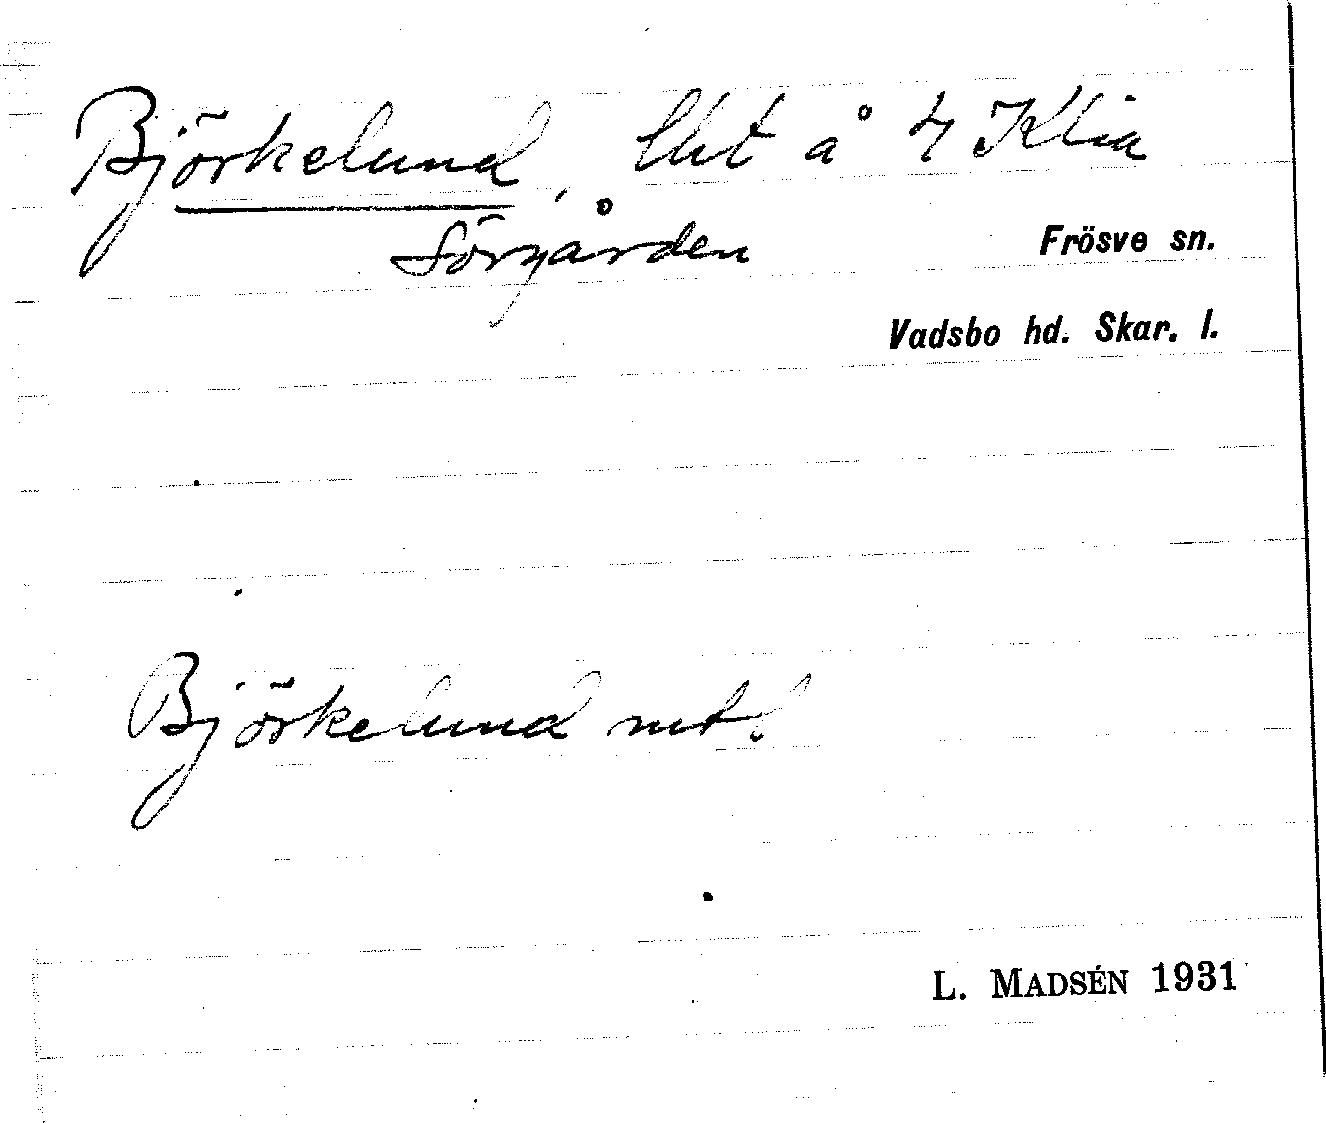 Björkelund, lht å 4 Klia
Sörgården
Frösve sn.
Vadsbo hd. Skar. l.
Björkelund mt!
L. MADSÉN 1931